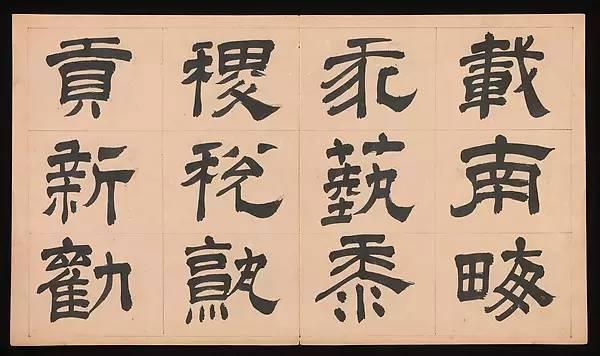 載南畮
我藝黍
稷稅熟
貢新勸